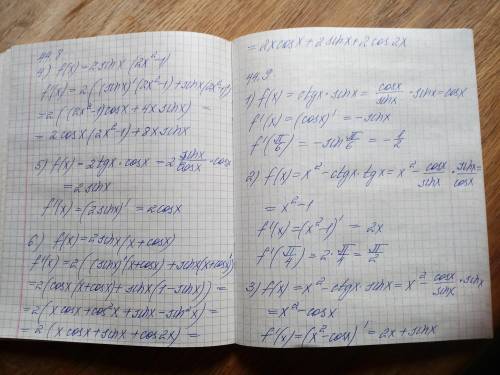 44.8
4) f(x) = 2sinx(2x²-1)
f'(x) = 2((sinx)'(2x²-1)+sinx(2x²-1)'
= 2((2x²-1)cosx + 4x sinx) =
= 2cosx(2x²-1)+8x sinx
5) f(x) = 2tgx · cosx = 2 sinx/cosx · cosx
= 2sinx
f'(x) = (2sinx)' = 2cosx
6) f(x) = 2sinx(x+cosx)
f'(x) = 2((sinx)'(x+cosx)+sinx(x+cosx)')
= 2(cosx(x+cosx)+sinx(1-sinx)) =
= 2(xcosx+cos²x+sinx-sin²x) =
= 2(xcosx+sinx+cos2x) =
= 2xcosx+2sinx+2cos2x
44.9.
1) f(x) = ctgx · sinx = cosx/sinx · sinx = cosx
f'(x) = (cosx)' = -sinx
f'(π/6) = -sin π/6 = -1/2
2) f(x) = x² - ctgx · tgx = x² - cosx/sinx · sinx/cosx =
= x²-1
f'(x) = (x²-1)' = 2x
f'(π/4) = 2 · π/4 = π/2
3) f(x) = x² - ctgx · sinx = x² - cosx/sinx · sinx
= x² - cosx
f'(x) = (x²-cosx)' = 2x + sinx